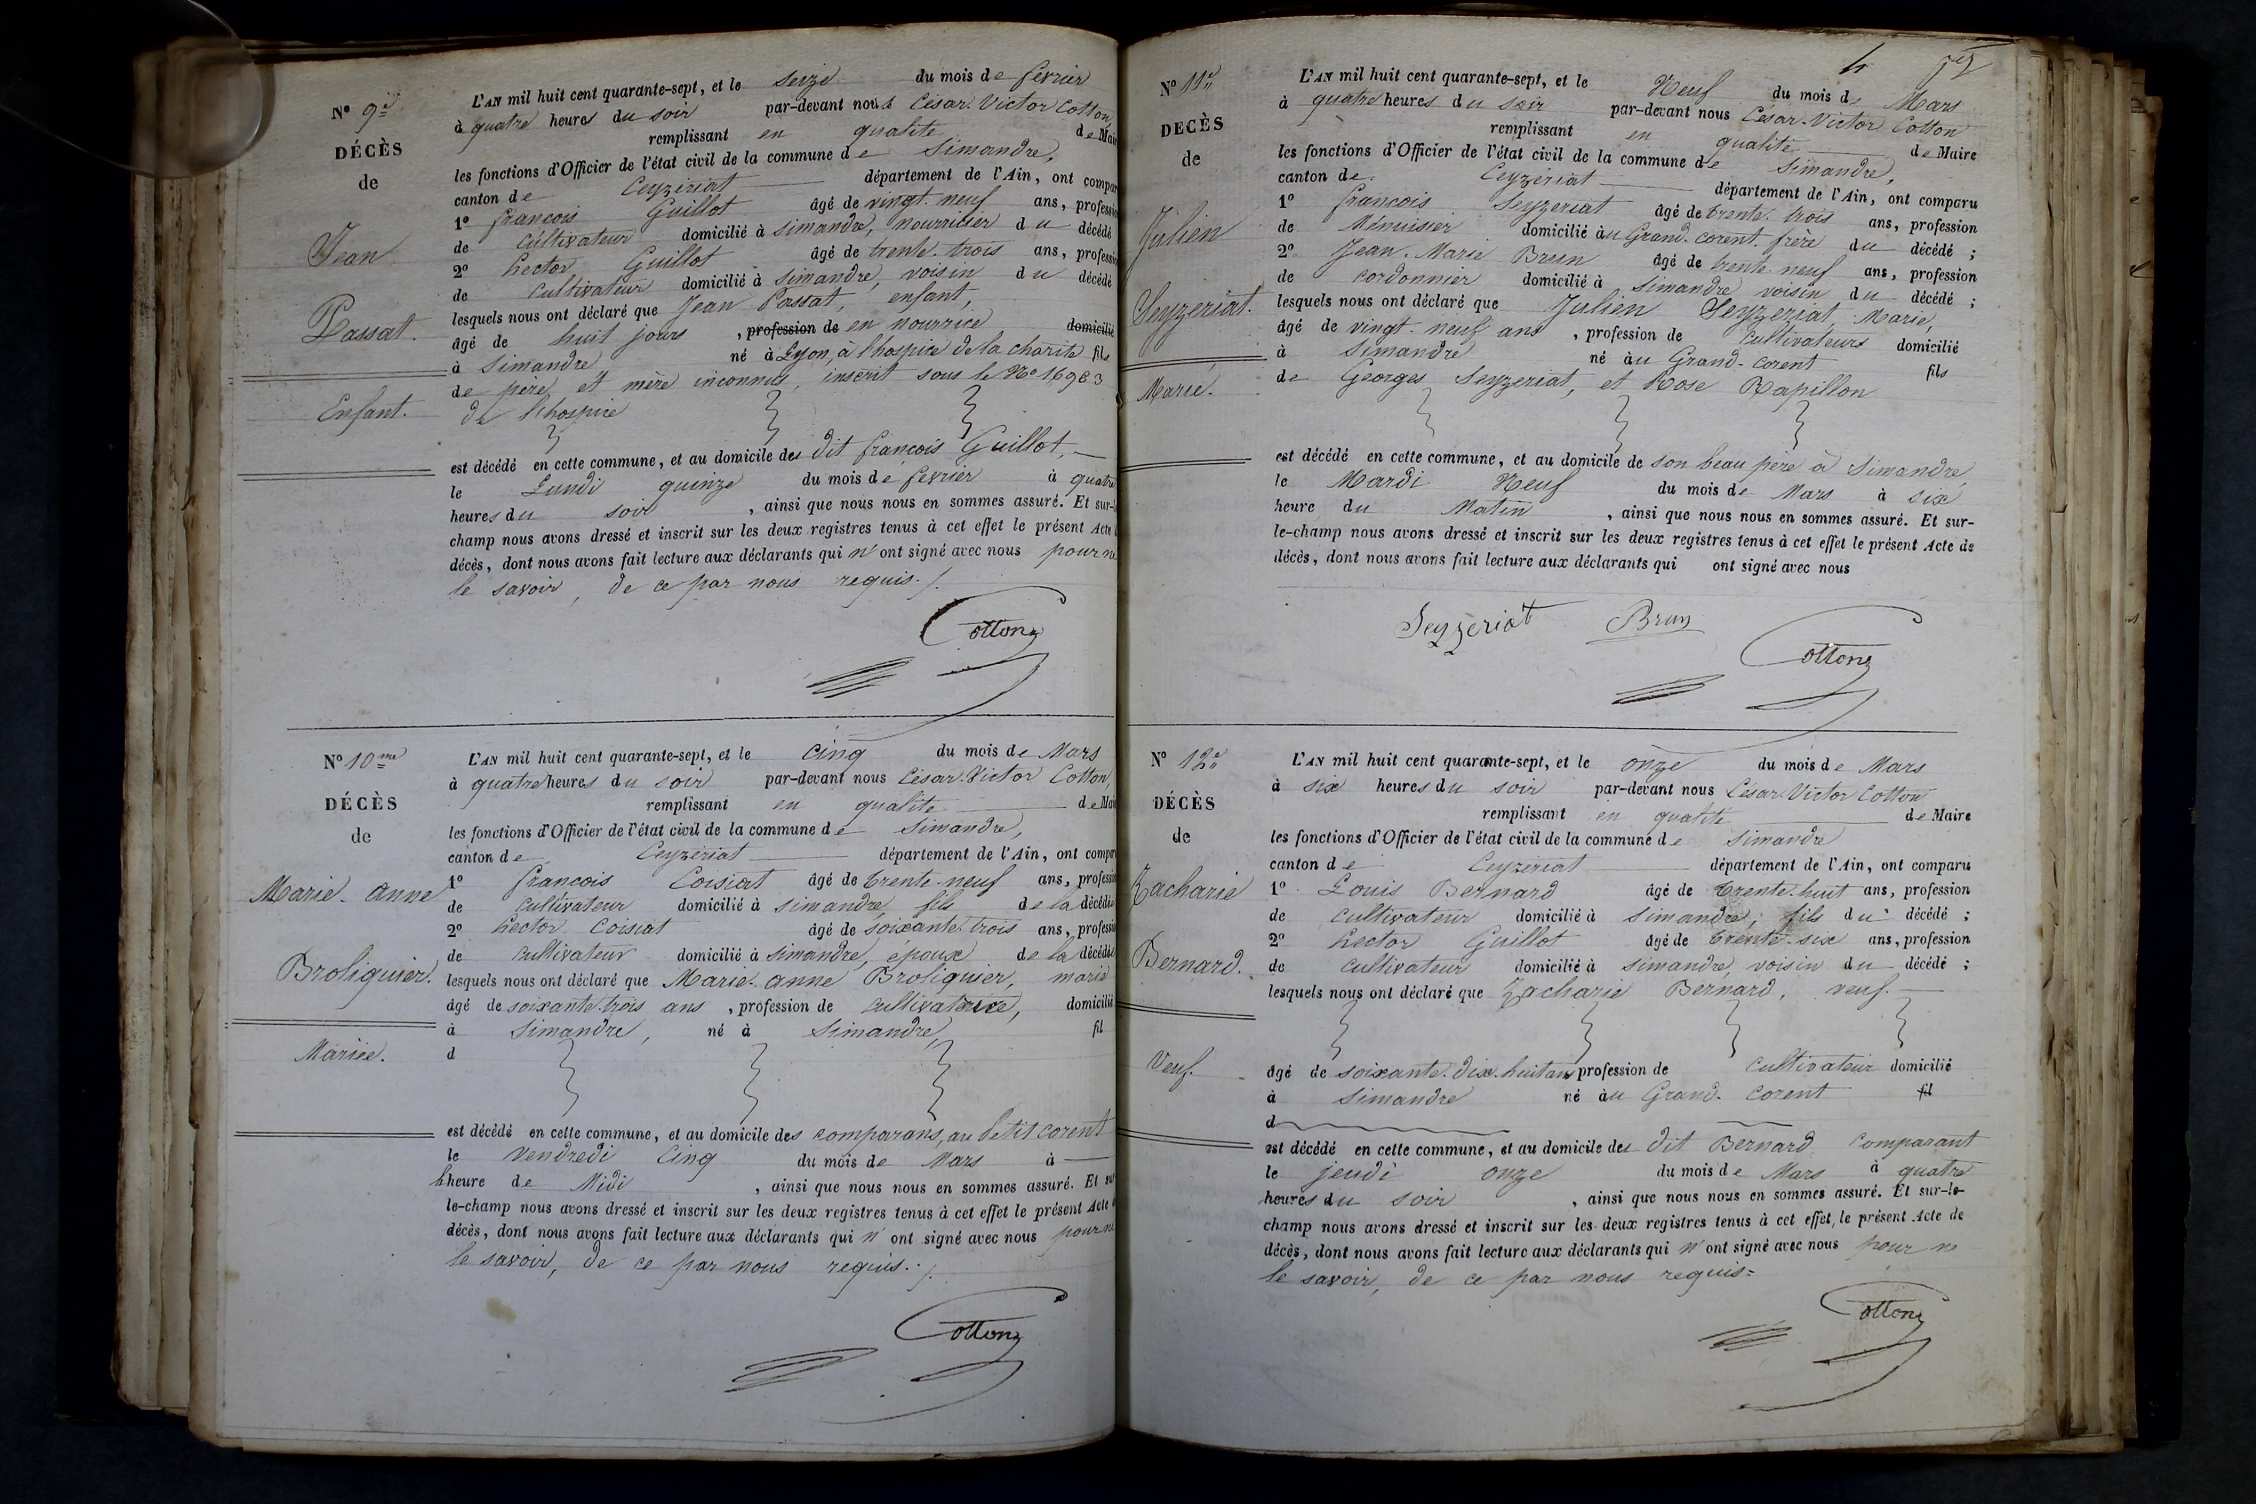 N° 9e
DÉCÈS
de
Jean
Passat.
Enfant.
L'AN mil huit cent quarante-sept, et le seize du mois de février
à quatre heures du soir par-devant nous César Victor Cotton,
remplissant en qualité de Mair
les fonctions d'Officier de l'état civil de la commune de Simandre,
canton de Ceyzériat département de l'Ain, ont compar
1° françois Guillot âgé de vingt-neuf ans, professio
de cultivateur domicilié à simandre, nourricier du décédé
2° hector Guillot âgé de trente-trois ans, professio
de cultivateur domicilié à simandre, voisin du décédé
lesquels nous ont déclaré que Jean Passat, enfant,
âgé de huit jours, profession de en nourrice domicilié
à Simandre né à Lyon, à l'hospice de la charité fils
de père et mère inconnus, inscrit sous le No 16983
de l'hospice
est décédé en cette commune, et au domicile des dit françois Guillot,
le Lundi quinze du mois de février à quatre
heures du soir, ainsi que nous nous en sommes assuré. Et sur-l
champ nous avons dressé et inscrit sur les deux registres tenus à cet effet le présent Acte
décès, dont nous avons fait lecture aux déclarants qui n'ont signé avec nous pour ne
le savoir, de ce par nous requis./.
Cotton
N° 10me
DÉCÈS
de
Marie-anne
Broliquier.
Mariée.
L'AN mil huit cent quarante-sept, et le cinq du mois de Mars
à quatre heures du soir par-devant nous César-Victor Cotton,
remplissant en qualité de Mai
les fonctions d'Officier de l'état civil de la commune de Simandre,
canton de Ceyzériat département de l'Ain, ont compar
1° françois Coisiat âgé de trente-neuf ans, professio
de cultivateur domicilié à simandre, fils de la décédée
2° hector Coisiat âgé de soixante-trois ans, professio
de cultivateur domicilié à simandre, époux de la décédée
lesquels nous ont déclaré que Marie-anne Broliquier, marié
âgé de soixante-trois ans, profession de cultivatrice, domicilié
à Simandre, né à Simandre, fil
d
est décédé en cette commune, et au domicile des comparans, au Petit corent
le vendredi cinq du mois de Mars à
hheure de Midi, ainsi que nous nous en sommes assuré. Et sur
le-champ nous avons dressé et inscrit sur les deux registres tenus à cet effet le présent Acte
décès, dont nous avons fait lecture aux déclarants qui n'ont signé avec nous pour ne
le savoir, de ce par nous requis./.
Cotton
4
N° 11e
DÉCÈS
de
Julien
Seyzeriat.
Marié.
L'AN mil huit cent quarante-sept, et le Neuf du mois de Mars
à quatre heures du soir par-devant nous César-Victor Cotton
remplissant en qualité de Maire
les fonctions d'Officier de l'état civil de la commune de Simandre,
canton de Ceyzériat département de l'Ain, ont comparu
1° françois Seyzeriat âgé de trente-trois ans, profession
de Ménuisier domicilié àu Grand-corent frère du décédé ;
2° Jean-Marie Brun âgé de trente-neuf ans, profession
de cordonnier domicilié à simandre voisin du décédé ;
lesquels nous ont déclaré que Julien Seyzeriat Marié,
âgé de vingt-neuf ans, profession de cultivateurs domicilié
à Simandre né àu Grand-corent fils
de Georges Seyzeriat, et Rose Papillon
est décédé en cette commune, et au domicile de son beau père à Simandre
le Mardi Neuf du mois de Mars à six
heure du Matin, ainsi que nous nous en sommes assuré. Et sur-
le-champ nous avons dressé et inscrit sur les deux registres tenus à cet effet le présent Acte de
décès, dont nous avons fait lecture aux déclarants qui ont signé avec nous
Seyzériat Brun
Cotton
N° 12e
DÉCÈS
de
Zacharie
Bernard.
Veuf.
L'AN mil huit cent quarante-sept, et le onze du mois de Mars
à six heures du soir par-devant nous César-Victor Cotton
remplissant en qualité de Maire
les fonctions d'Officier de l'état civil de la commune de Simandre
canton de Ceyzériat département de l'Ain, ont comparu
1° Louis Bernard âgé de trente-huit ans, profession
de cultivateur domicilié à simandre, fils du décédé ;
2° hector Guillot âgé de trente-six ans, profession
de cultivateur domicilié à simandre, voisin du décédé ;
lesquels nous ont déclaré que Zacharie Bernard, veuf.
âgé de soixante-dix-huit ans profession de cultivateur domicilié
à Simandre né àu Grand-corent fil
d
est décédé en cette commune, et au domicile des dit Bernard comparant
le jeudi onze du mois de Mars à quatre
heures du soir, ainsi que nous nous en sommes assuré. Et sur-le-
champ nous avons dressé et inscrit sur les deux registres tenus à cet effet, le présent Acte de
décès, dont nous avons fait lecture aux déclarants qui n'ont signé avec nous pour ne
le savoir, de ce par nous requis=
Cotton